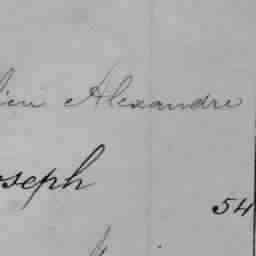 lien Alexandre
oseph
54